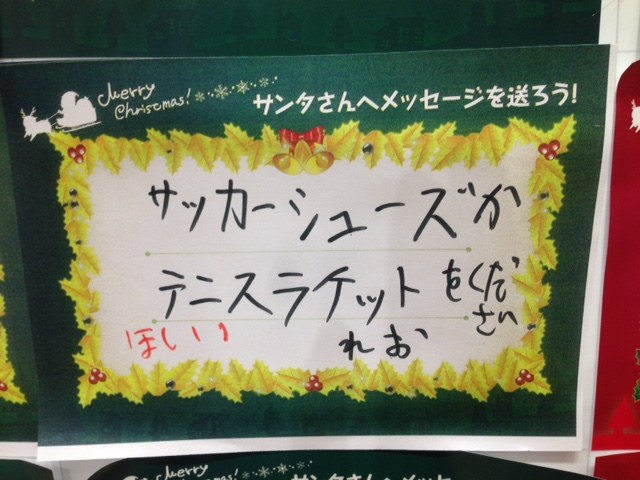 Merry Christmas!
サンタさんへメッセージを送ろう!
サッカーシューズか
テニスラケットをください
ほしい
れお
Merry
サンタさんへメッセ